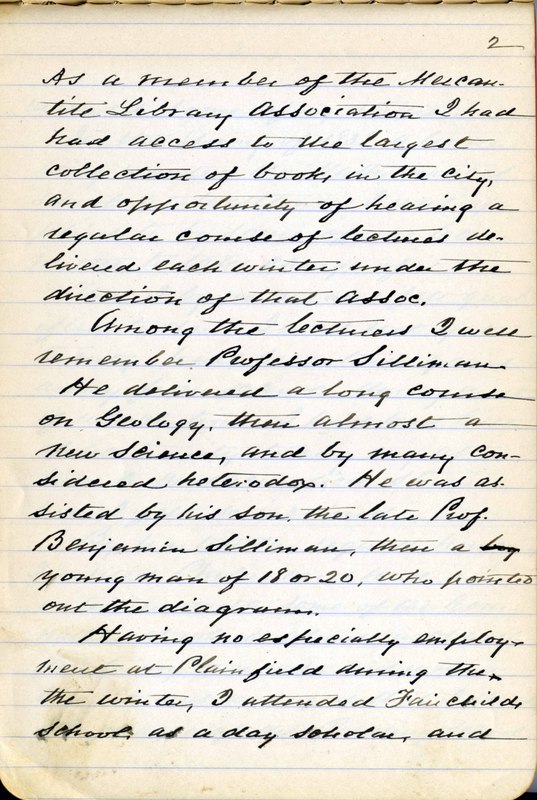 2
As a member of the Mercan-
tile Library Association I had
had access to the largest
collection of books in the city,
and opportunity of hearing a
regular course of lectures de-
livered each winter under the
direction of that Assoc.
Among the lecturers I well
remember Professor Silliman.
He delivered a long course
on Geology, then almost a
new science, and by many con-
sidered heterodox. He was as-
sisted by his son, the late Prof.
Benjamin Silliman, then a boy
young man of 18 or 20, who pointed
out the diagrams.
Having no especially employ-
ment at Plainfield during the
the winter, I attended Fairchilds
school, as a day scholar, and